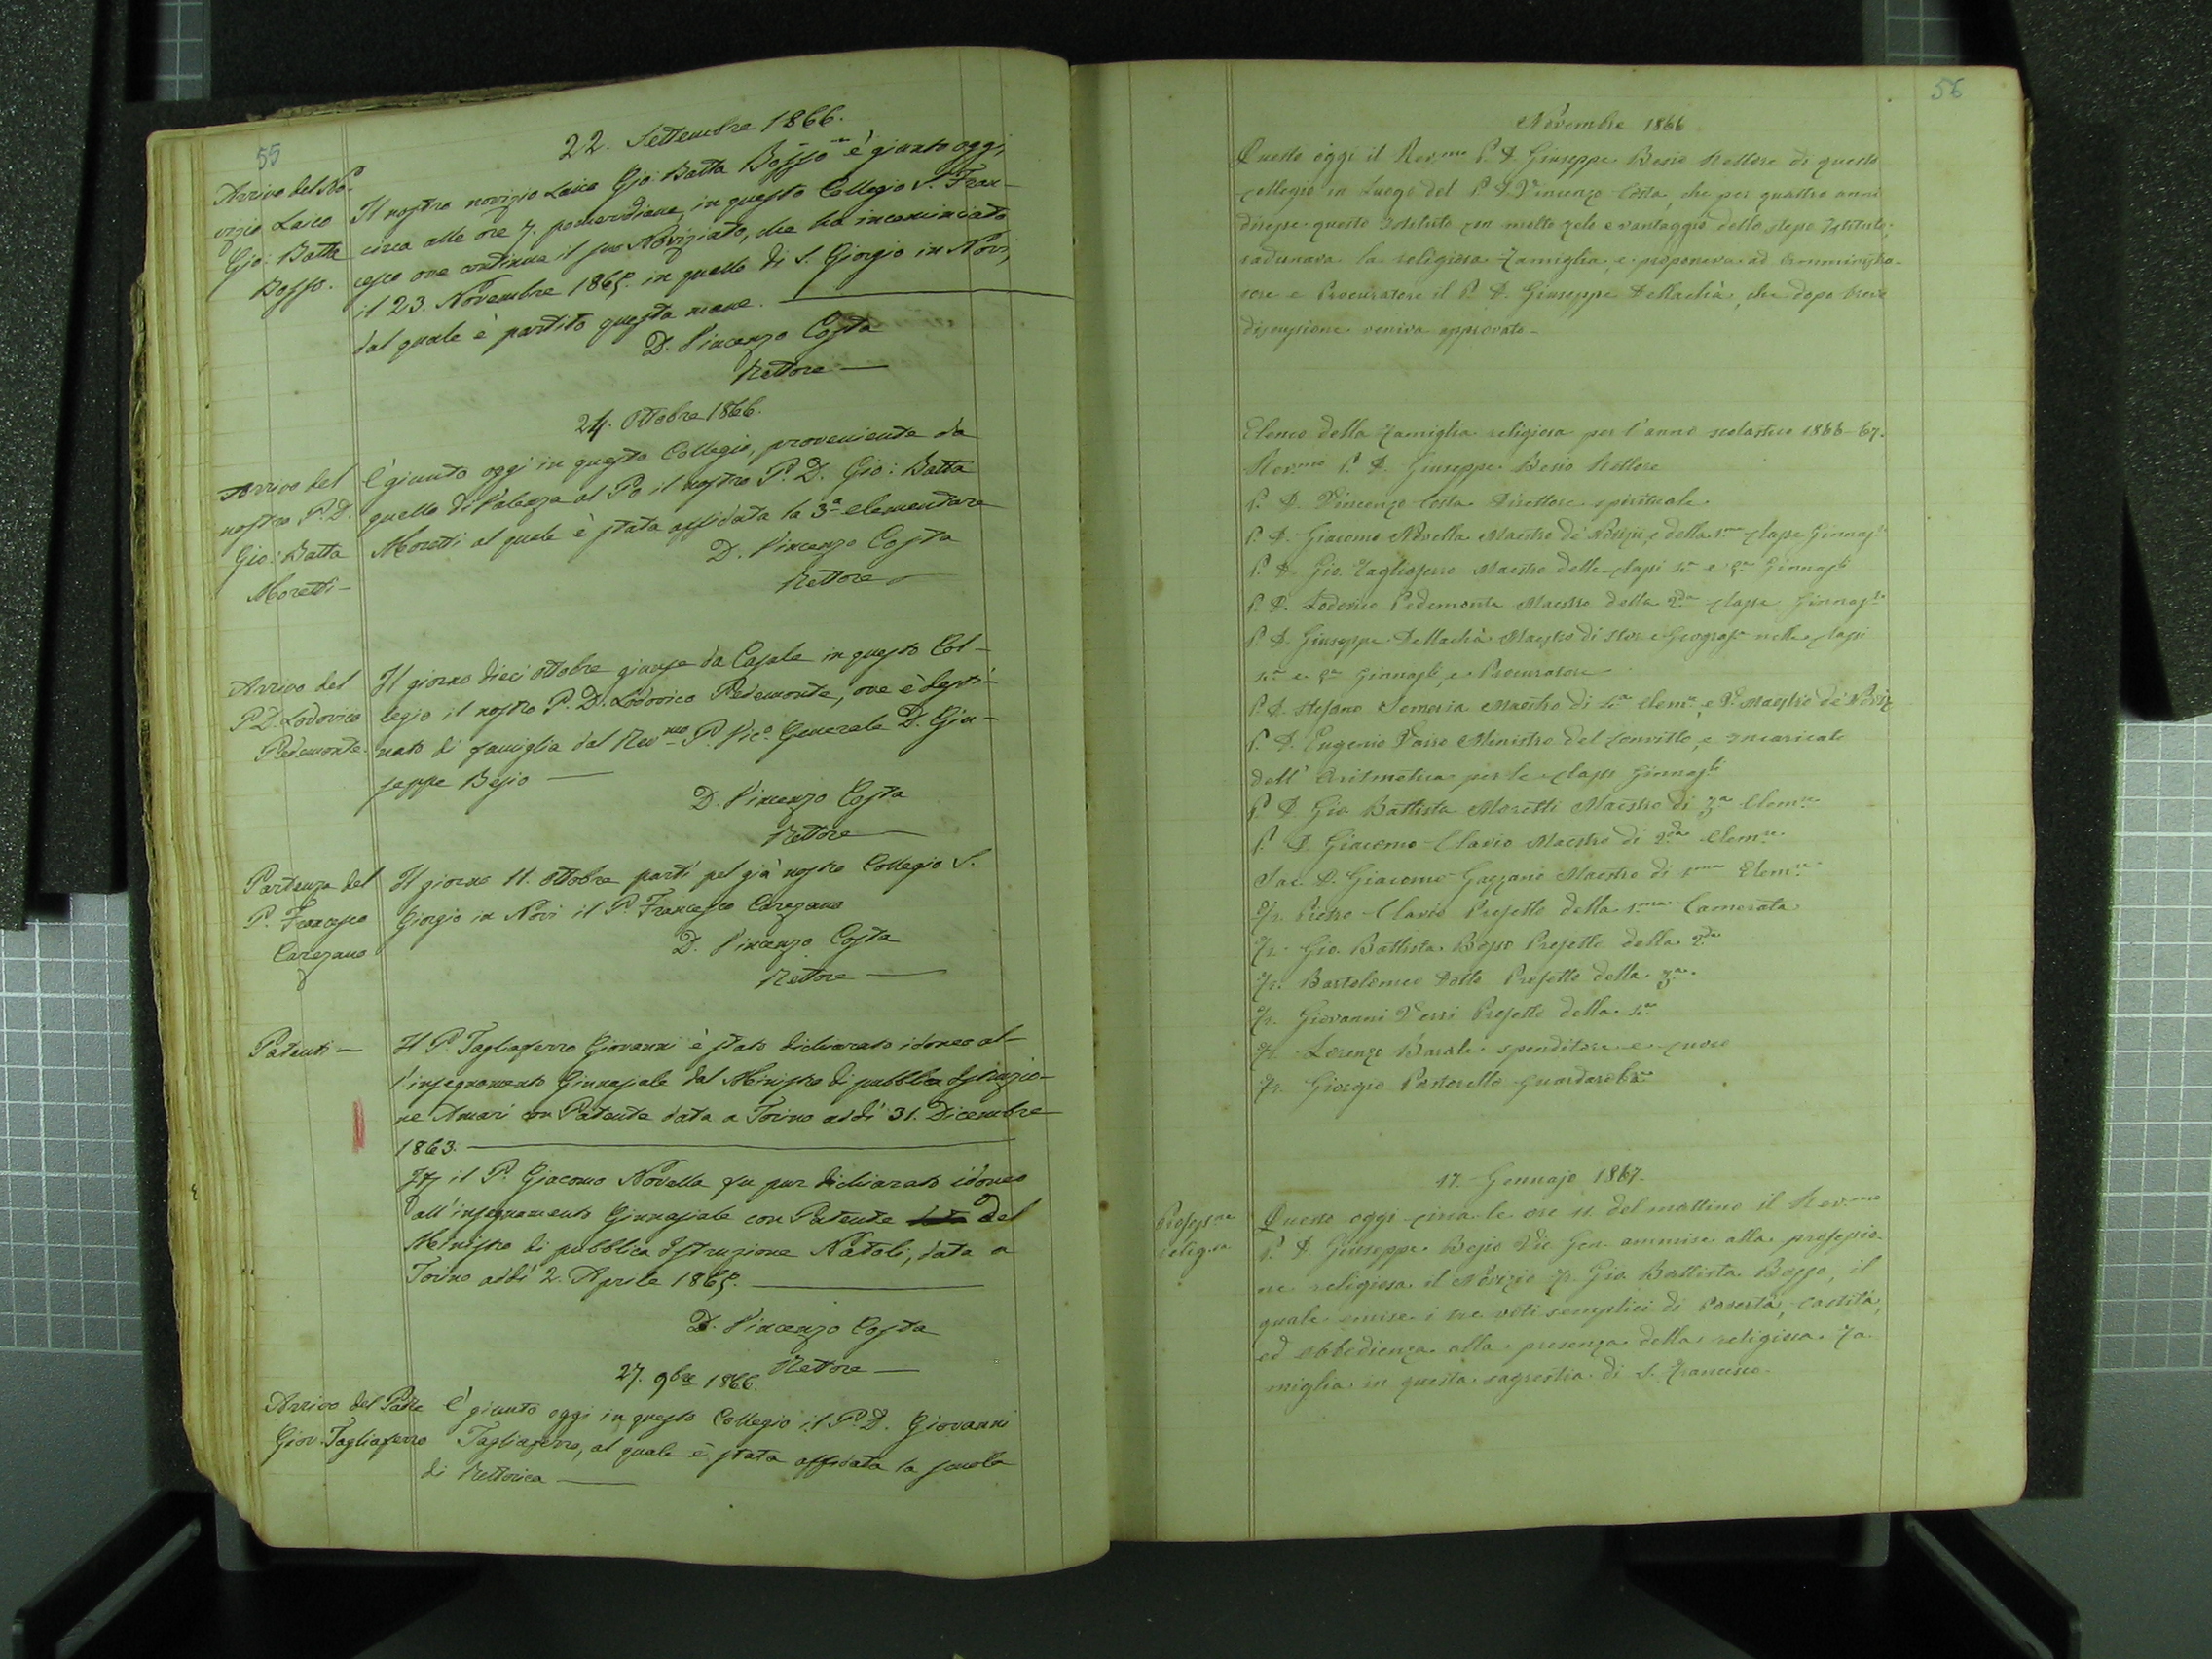 55
22. Settembre 1866.
Arrivo del No-
vizio Laico
Gio: Batta
Bosso.
Il nostro novizio Laico Gio: Batta Bosso è giunto oggi
circa alle ore 7. pomeridiane, in questo Collegio S. Fran-
cesco ove continua il suo Noviziato, che ha incominciato
il 23. Novembre 1865. in quello di S. Giorgio in Novi,
dal quale è partito questa mane.
D. Vincenzo Costa
Rettore
24. Ottobre 1866.
Arrivo del
nostro P. D.
Gio: Batta
Moretti
È giunto oggi in questo Collegio, proveniente da
quello di Valenza al Po il nostro P. D. Gio: Batta
Moretti al quale è stata affidata la 3a elementare
D. Vincenzo Costa
Rettore
Arrivo del
P. D. Lodovico
Pedemonte
Il giorno dieci ottobre giunse da Casale in questo Col-
legio il nostro P. D. Lodovico Pedemonte, ove è desti-
nato di famiglia dal Revmo P. Vico Generale D. Giu-
seppe Besio
D. Vincenzo Costa
Rettore
Partenza del
P. Francesco
Caregano
Il giorno 11. ottobre partì pel già nostro Collegio S.
Giorgio in Novi il P. Francesco Caregano
D. Vincenzo Costa
Rettore
Patenti
Il P. Tagliaferro Giovanni è stato dichiarato idoneo al-
l'insegnamento Ginnasiale dal Ministro di pubblica Istruzio-
ne Amari con Patente data a Torino addì 31. Dicembre
1863.
il P. Giacomo Novella fu pur dichiarato idoneo
all'insegnamento Ginnasiale con Patente del
Ministro di pubblica Istruzione Natoli, data a
Torino addì 2. Aprile 1865.
D. Vincenzo Costa
Rettore
27. 9bre 1866.
Arrivo del Padre
Giov. Tagliaferro
È giunto oggi in questo Collegio il P. D. Giovanni
Tagliaferro, al quale è stata affidata la scuola
di Rettorica
56
Novembre 1866
Questo oggi il Rev.mo P. D. Giuseppe Besio Rettore di questo
collegio in luogo del P. D. Vincenzo Costa, che per quattro anni
diresse questo Istituto con molto zelo e vantaggio dello stesso Istituto,
radunava la religiosa Famiglia, e proponeva ad Amministra-
tore e Procuratore il P. D. Giuseppe Dellachà, che dopo breve
discussione veniva approvato.
Elenco della Famiglia religiosa per l'anno scolastico 1866-67.
Rev.mo P. D. Giuseppe Besio Rettore
P. D. Vincenzo Costa Direttore spirituale
P. D. Giacomo Novella Maestro de' Novizi, e della 1ma classe Ginnas.le
P. D. Gio. Tagliaferro Maestro delle classi 4a e 5a Ginnasli
P. D. Lodovico Pedemonte Maestro della 2da classe Ginnas.le
P. D. Giuseppe Dellachà Maestro di Stor. e Geograf.a nelle classi
4a e 5a Ginnasli, e Procuratore
P. D. Stefano Semeria Maestro di 4a elem.e, e V. Maestro de' Noviz
P. D. Eugenio Vairo Ministro del convitto, e incaricato
dell' Aritmetica per le classi Ginnasli
P. D. Gio Battista Moretti Maestro di 3a Elem.re
P. D. Giacomo Clavio Maestro di 2da elem.re
Sac. D. Giacomo Gazzano Maestro di 1ma Elem.re
Fr. Pietro Clavio Prefetto della 1ma Camerata
Fr. Gio. Battista Bosso Prefetto della 2da
Fr. Bartolomeo Dotto Prefetto della 3a
Fr. Giovanni Verri Prefetto della 4a
Fr. Lorenzo Barale spenditore e cuoco
Fr. Giorgio Pastorello Guardaroba
17. Gennajo 1867.
Profess.ne
relig.sa
Questo oggi circa le ore 11 del mattino il Rev.mo
P. D. Giuseppe Besio Vic. Gen. ammise alla professio-
ne religiosa il Novizio Fr. Gio. Battista Bosso, il
quale emise i tre voti semplici di Povertà, castità,
ed obbedienza alla presenza della religiosa Fa-
miglia in questa sagrestia di S. Francesco.